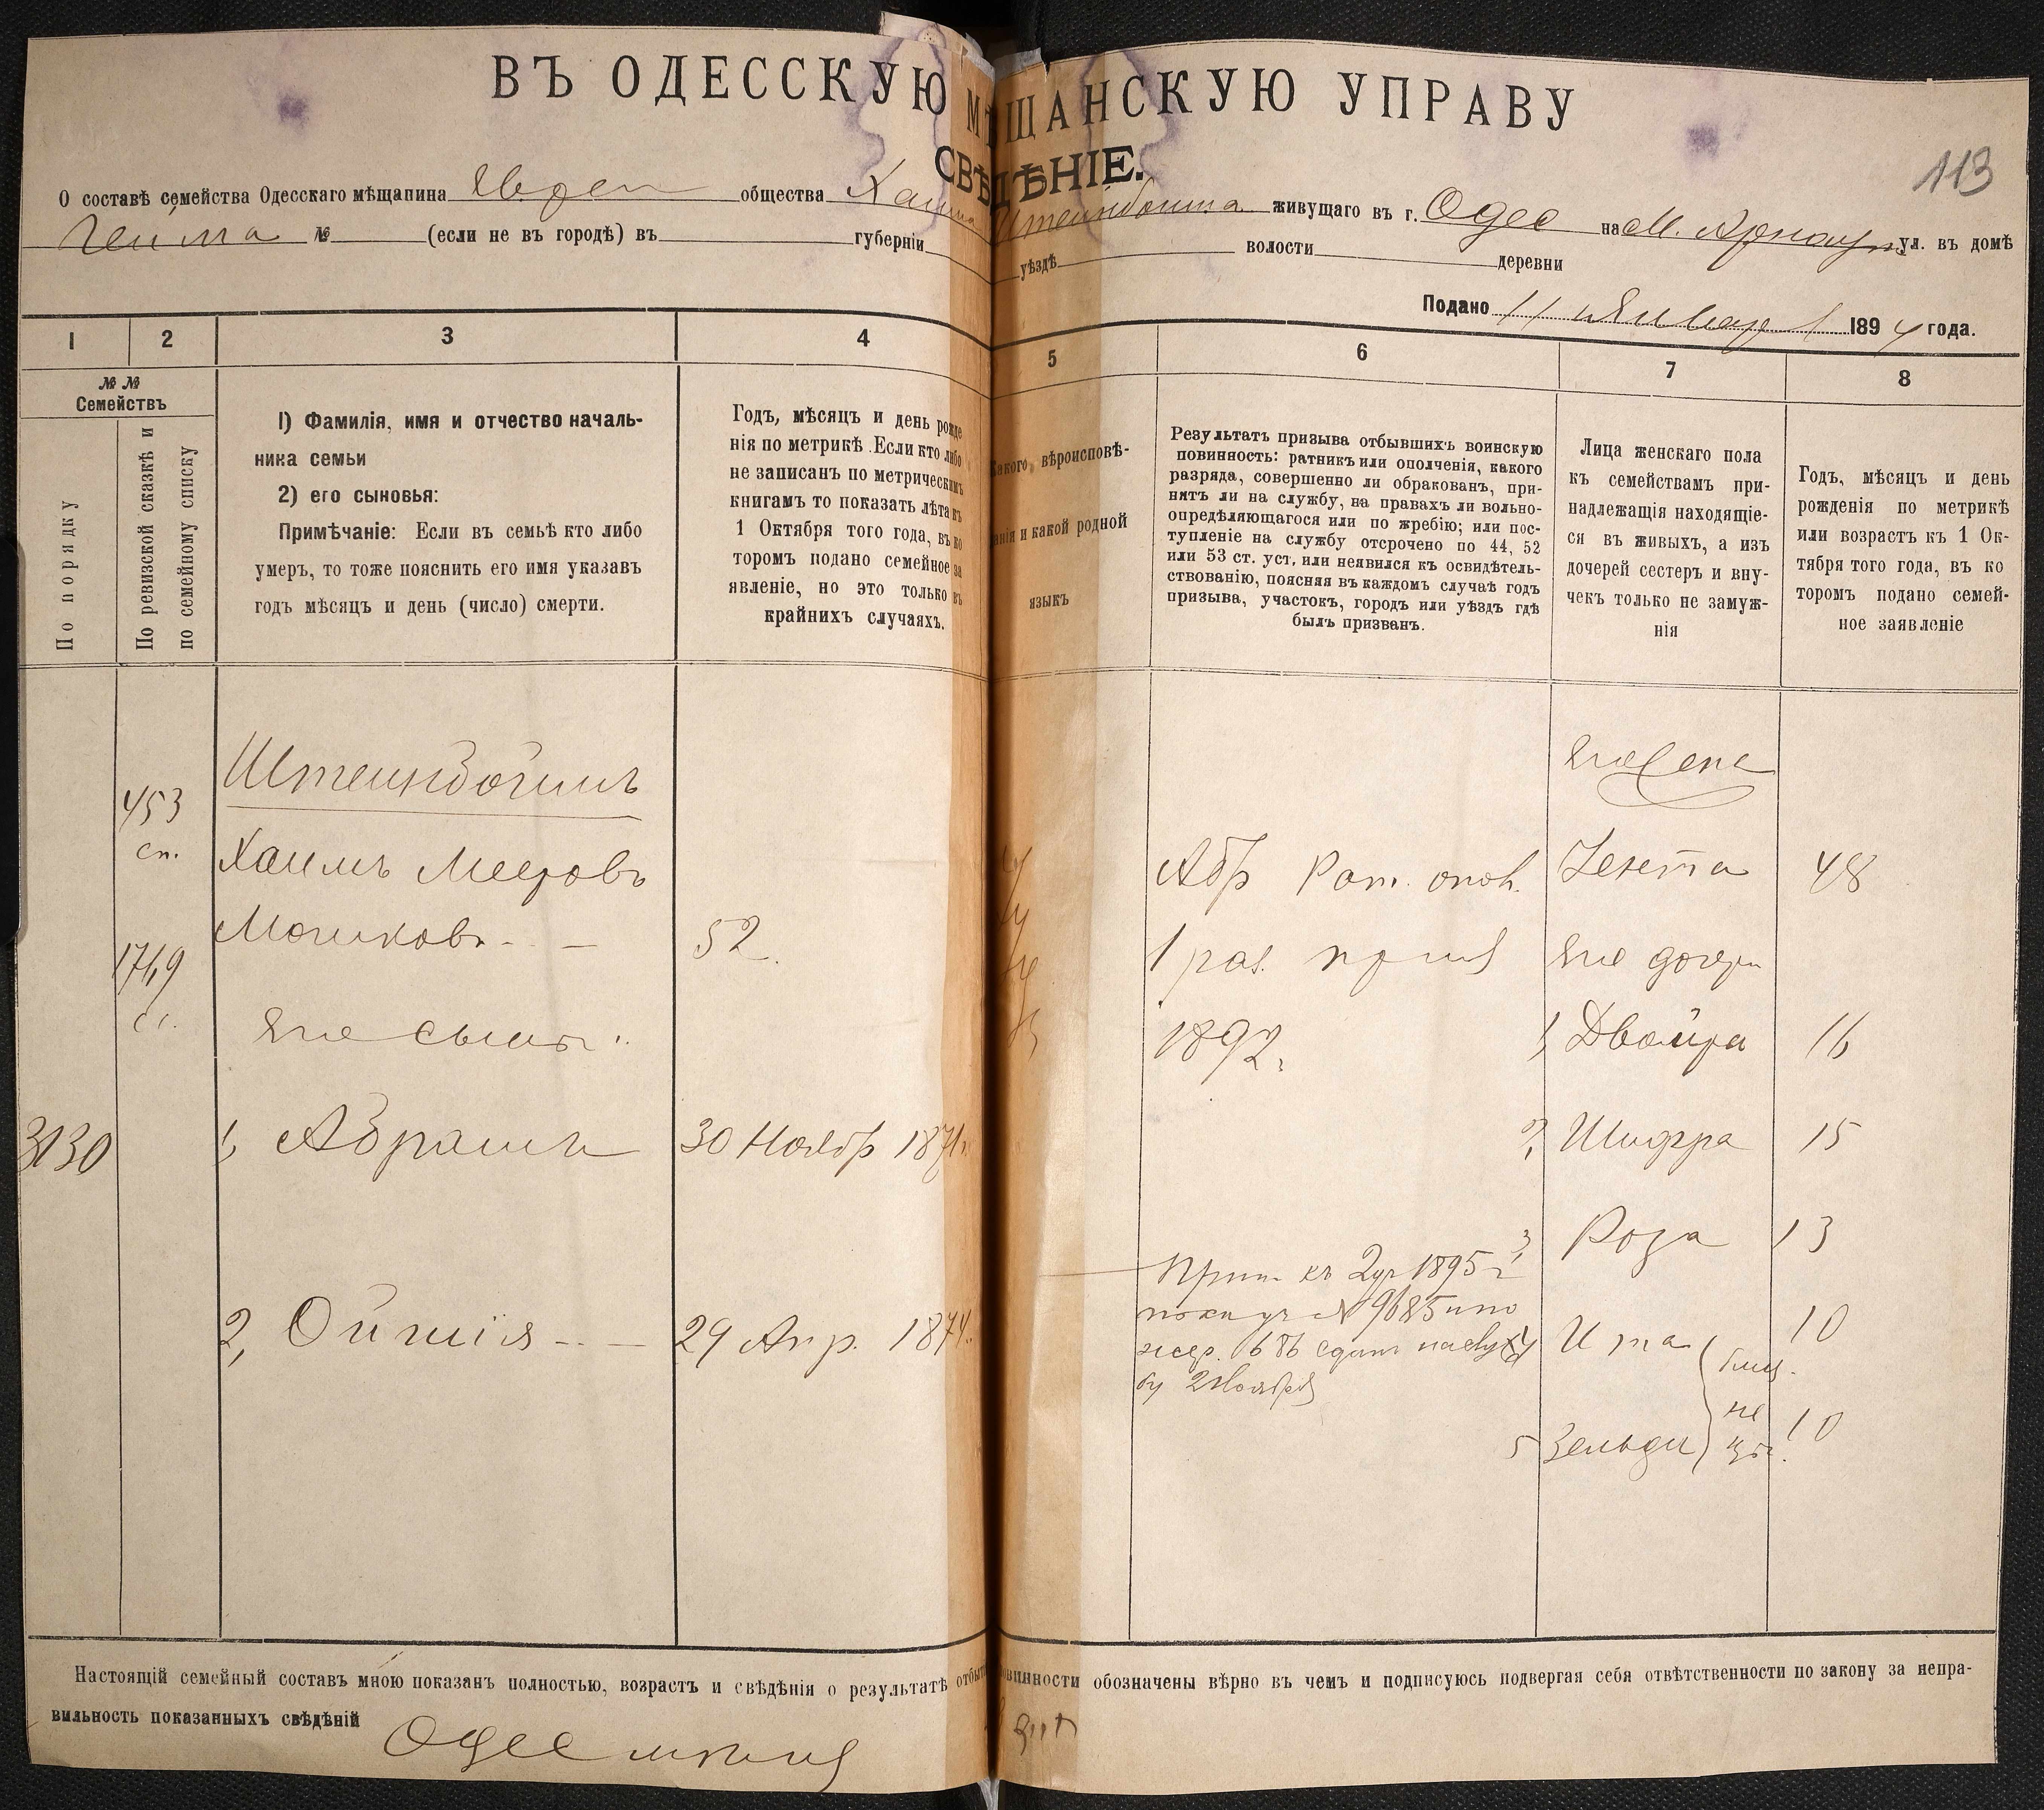 ВЪ ОДЕССКУЮ МѢЩАНСКУЮ УПРАВУ
СВѢДѢНІЕ.
113
О составѣ семейства Одесскаго мѣщанина Еврея общества Хаима Штейнбойма живущаго въ г. Одес на М. Арнаут ул. въ домѣ
№ (если не въ городѣ) въ губерніи уѣздѣ волости деревни
Подано 11 Января 1894 года.
1 2 3 4 5 6 7 8
№ №
Семействъ
По порядку
По ревизской сказкѣ и
по семейному списку
1) Фамилія, имя и отчество началь-
ника семьи
2) его сыновья:
Примѣчаніе: Если въ семьѣ кто либо
умеръ, то тоже пояснить его имя указавъ
годъ мѣсяцъ и день (число) смерти.
Годъ, мѣсяцъ и день рожде
нія по метрикѣ. Если кто либо
не записанъ по метрическимъ
книгамъ то показать лѣта къ
1 Октября того года, въ ко
торомъ подано семейное за
явленіе, но это только въ
крайнихъ случаяхъ.
Какого вѣроисповѣ-
данія и какой родной
языкъ
Результатъ призыва отбывшихъ воинскую
повинность: ратникъ или ополченія, какого
разряда, совершенно ли обракованъ, при-
нятъ ли на службу, на правахъ ли вольно-
опредѣляющагося или по жребію; или пос-
тупленіе на службу отсрочено по 44, 52
или 53 ст. уст. или неявился къ освидѣтель-
ствованію, поясняя въ каждомъ случаѣ годъ
призыва, участокъ, городъ или уѣздъ гдѣ
былъ призванъ.
Лица женскаго пола
къ семействамъ при-
надлежащія находящіе-
ся въ живыхъ, а изъ
дочерей сестеръ и вну-
чекъ только не замуж-
нія
Годъ, мѣсяцъ и день
рожденія по метрикѣ
или возрастъ къ 1 Ок-
тября того года, въ ко
торомъ подано семей-
ное заявленіе
Штейнбоймъ
453
сп.
Хаимъ Мееровъ
Мошковъ - - 52.
1749
Его сыны:
3130
1, Абрамъ 30 Ноябр 1871
2, Ойшія - - 29 Апр. 1874.
Абр Рат. опол.
1 раз. приз
1892.
Прит къ 2 уч 1895 г
№ 9685 и по
жер. 686 сдан на служ
бу 2 Ноября
Его жена
48
Его дочери
1, Двойра 16
2, Шифра 15
3, Роза 13
4 Ита 10
5 Зельда 10
близ
не
цы.
Настоящій семейный составъ мною показанъ полностью, возрастъ и свѣдѣнія о результатѣ отбытія повинности обозначены вѣрно въ чемъ и подписуюсь подвергая себя отвѣтственности по закону за непра-
вильность показанныхъ свѣдѣній